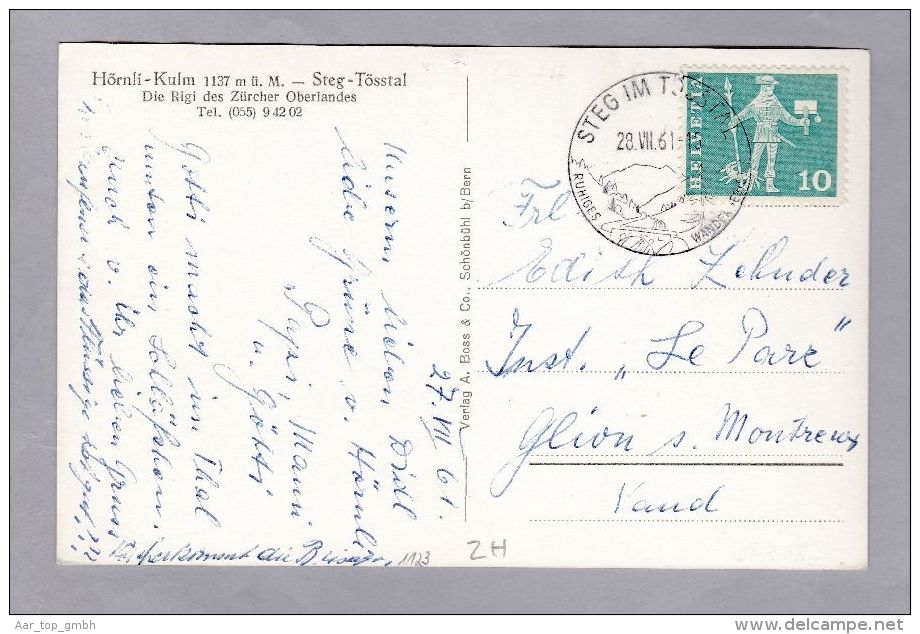 Hörnli-Kulm 1137 m ü. M. — Steg-Tösstal
Die Rigi des Zürcher Oberlandes
Tel. (055) 9 42 02
27. VII 61.
Unserm lieben Didl
liebe Grüsse v. Hörnli
Papi, Mami
u. Götti
Gotti macht im Thal
unten ein Schläfchen.
Auch v. ihr lieben Gruss
die
1123
Verlag A. Boss & Co., Schönbühl b/Bern
STEG IM TÖSSTAL
28. VII. 61-
RUHIGES
HELVETIA
10
Frl
Edith Zehnder
Inst. „Le Parc"
Glion s. Montreux
Vaud
ZH
Aar_top_gmbh
www.delcampe.net